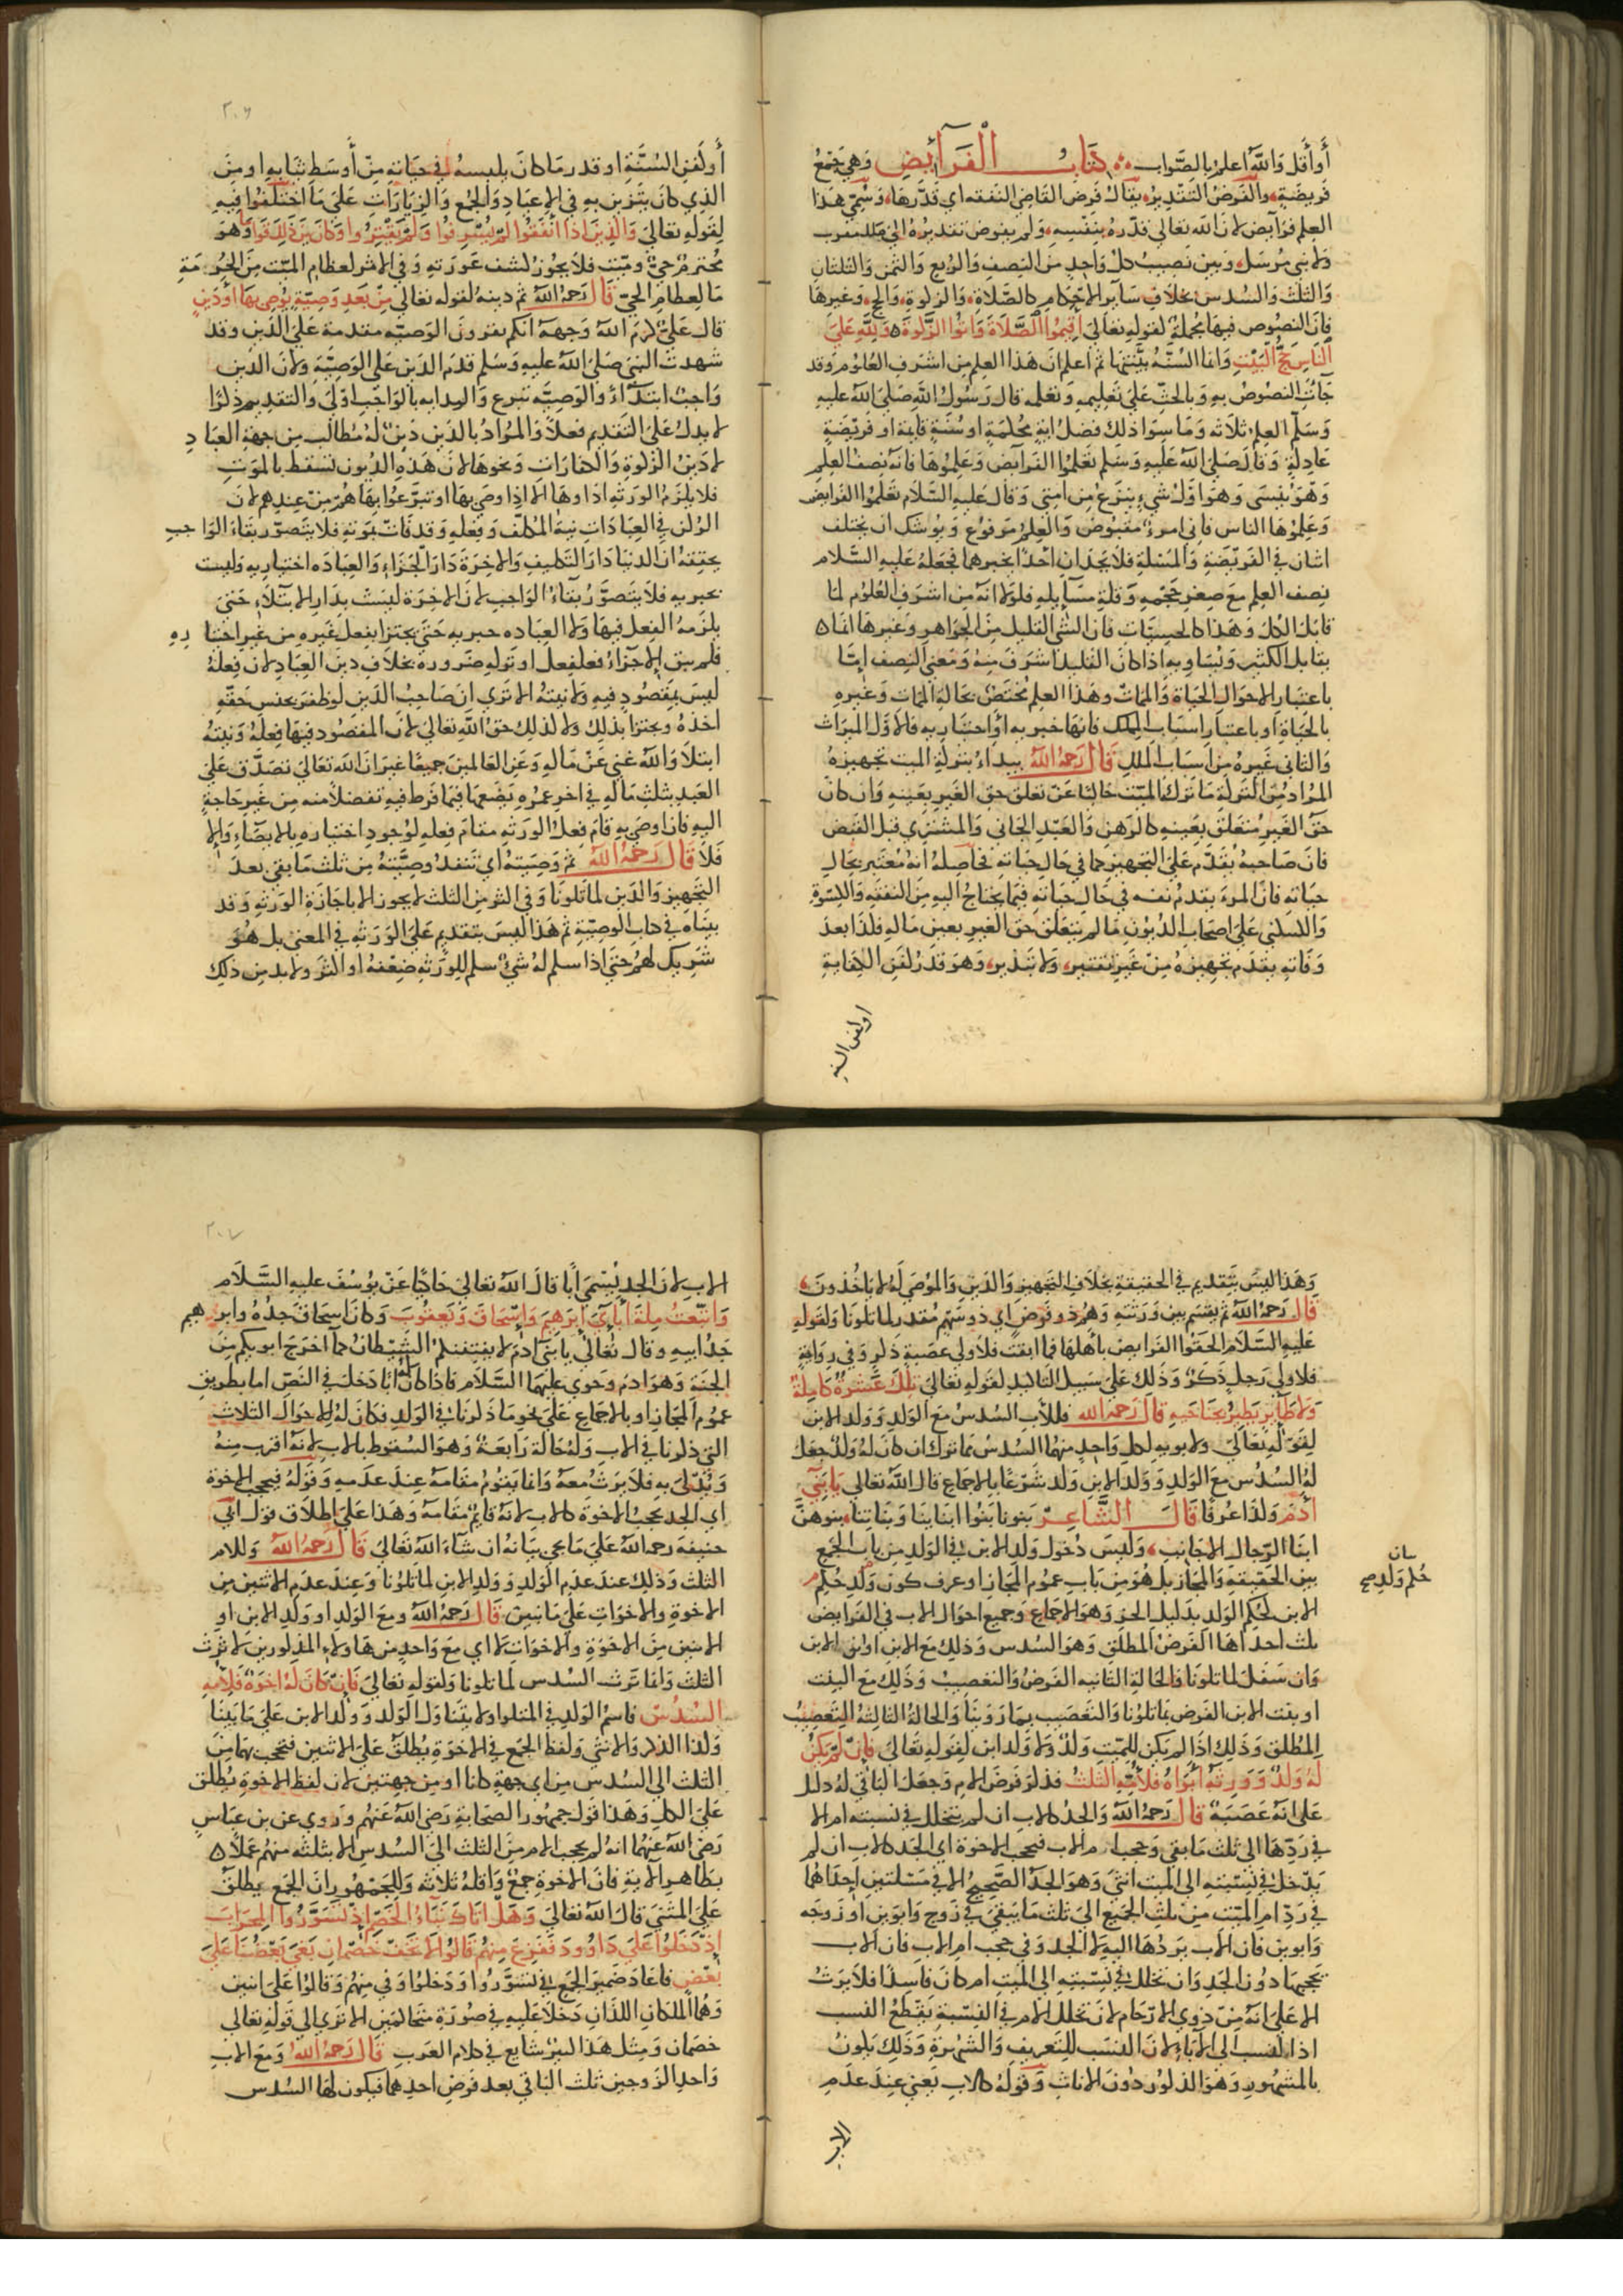 أو أقل والله اعلم بالصواب كتاب الفرآئض وهي جمع
فريضة والفرض التقدير يقال فرض القاضي النفقه اي قدرها وسمي هذا
العلم فرآيض لان الله تعالي قدره بنفسه ولم يفوض تقديره الي ملك مقرب
ولا نبي مرسل وبين نصيب كل واحد من النصف والربع والثمن والثلثان
والثلث والسدس بخلاف سآير الاحكام كالصلاة والزكوة والحج وغيرها
فان النصوص فيها مجملة لقوله تعالي اقيموا الصلاة واتوا الزكوة ولله علي
الناس حج البيت وانما السنة بينتها ثم اعلم ان هذا العلم من اشرف العلوم وقد
جآت النصوص به وبالحث علي تعليمه وتعلمه قال رسول الله صلي الله عليه
وسلم العلم ثلاثه وما سوا ذلك فضل اية محكمة او سنة قايمة او فريضة
عادلة وقال صلي الله عليه وسلم تعلموا الفرآيض وعلموها فانه نصف العلم
وهو ينسي وهو اول شيء ينزع من امتي وقال عليه السلام تعلموا الفرايض
وعلموها الناس فاني امرؤ مقبوض والعلم مرفوع ويوشك ان يختلف
اثنان في الفريضة والمسئلة فلا يجدان احدا يخبرهما فجعله عليه السلام
نصف العلم مع صغر حجمه وقلة مسآيله فلولا انه من اشرف العلوم لما
قابل الكل وهذا كالحسيات فان الشي القليل من الجواهر وغيرها انما
يقابل الكثير ويساويه اذا كان القليل اشرف منه ومعني النصف إما
باعتبار الاحوال الحياة والممات وهذا العلم مختص بحالة الممات وغيره
بالحياة او باعتبار اسباب الملك فانها خبريه أو اختياريه فالاول الميراث
والثاني غيره من اسباب الملك قال رحمه الله يبداء بتركة الميت تجهيزه
المراد من التركة ما تركه الميت خاليا عن تعلق حق الغير بعينه وان كان
حق الغير متعلق بعينه كالرهن والعبد الجاني والمشتري قبل القبض
فان صاحبه يقدم علي التجهيز كما في حال حياته فحاصله أنه معتبر بحال
حياته فان المرء يقدم نفسه في حال حياته فيما يحتاج اليه من النفقه والكسوة
والسكني علي اصحاب الديون ما لم يتعلق حق الغير بعين ماله فلذا بعد
وفاته يقدم تجهيزه من غير تقتير ولا تبذير وهو قدر كفن الكفاية
اوكفن السنة
٢٠٦
أو كفن السنة او قدر ما كان يلبسه في حياته من أوسط ثيابه او من
الذي كان يتزين به في الاعياد والجمع والزيارات علي ما اختلفوا فيه
لقوله تعالي والذين اذا أنفقوا لم يسرفوا ولم يقتروا وكان بين ذلك قواما وهو
محترم حي وميت فلا يجوز كشف عورته وفي الاثر لعظام الميت من الحرمة
ما لعظام الحي قال رحمه الله ثم دينه لقوله تعالي من بعد وصية يوصي بها أو دين
قال علي كرم الله وجهه انكم تقرون الوصيه مقدمة علي الدين وقد
شهدت النبي صلي الله عليه وسلم قدم الدين علي الوصية ولان الدين
واجب ابتدآء والوصيه تبرع والبدايه بالواجب اولي والتقديم ذكرا
لا يدل علي التقديم فعلا والمراد بالدين دين له مطالب من جهة العباد
لا دين الزكوة والكفارات ونحوها لان هذه الديون تسقط بالموت
فلا يلزم الورثه اداوها الا اذا وصي بها او تبرعوا بها هم من عندهم لان
الركن في العبادات نية المكلف وفعله وقد فات بموته فلا يتصور بقاء الواجب
يحققه ان الدنيا دار التكليف والاخرة دار الجزاء والعباده اختياريه وليست
بجبريه فلا يتصور بقاء الواجب لان الاخرة ليست بدار الابتلاء حتي
يلزمه الفعل فيها ولا العباده جبريه حتي يجتزا بفعل غيره من غير اختياره
فلم يبق الا جزاء فعل فعل او تركه ضرورة بخلاف دين العباد لان فعله
ليس بمقصود فيه ولا نيته الا تري ان صاحب الدين لو ظفر بجنس حقه
اخذه ويجتزا بذلك ولا لذلك حق الله تعالي لان المقصود فيها فعله ونيته
ابتلا والله غني عن ماله وعن العالمين جميعا غير ان الله تعالي تصدق علي
العبد بثلث ماله في اخر عمره يضعها فيما فرط فيه تفضلا منه من غير حاجة
اليه فان اوصي به قام فعل الورثه مقام فعله لوجود اختياره بالايصاء والا
فلا قال رحمه الله ثم وصيته اي تنفد وصيته من ثلث ما بقي بعد
التجهيز والدين لما تلونا وفي اكثر من الثلث لا يجوز الا باجازة الورثه وقد
بيناه في كتاب الوصية ثم هذا ليس بتقديم علي الورثه في المعني بل هو
شريك لهم حتي اذا سلم له شي سلم للورثه ضعفه او اكثر ولا بد من ذلك
وهذا ليس بتقديم في الحقيقة بخلاف التجهيز والدين والموصي له لا ياخذون
قال رحمه الله ثم يقسم بين ورثته وهم ذو فرض اي ذو سهم مقدر لما تلونا ولقوله
عليه السلام الحقوا الفرايض باهلها فما ابقت فلاولي عصبة ذكر وفي رواية
فلاولي رجل ذكر وذلك علي سبيل التاكيد لقوله تعالي تلك عشرة كاملة
ولا طآير يطير بجناحيه قال رحمه الله فللأب السدس مع الولد وولد الابن
لقوله تعالي ولابويه لكل واحد منهما السدس مما ترك ان كان له ولد جعل
له السدس مع الولد وولد الابن ولد شرعا بالاجماع قال الله تعالي يا بني
أدم ولذا عرفا قال الشاعر بنونا بنوا ابنايينا وبناتنا بنوهن
ابنا الرجال الاجانب وليس دخول ولد الابن في الولد من باب الجمع
بين الحقيقة والمجاز بل هو من باب عموم المجاز او عرف كون ولد حكم
الابن لحكم الولد بدليل اخر وهو الاجماع وجميع احوال الاب في الفرايض
ثلث احداها الفرض المطلق وهو السدس وذلك مع الابن او ابن الابن
وان سفل لما تلونا والحالة الثانيه الفرض والتعصيب وذلك مع البنت
او بنت الابن الفرض بما تلونا والتعصيب بما روينا والحالة الثالثة التعصيب
المطلق وذلك اذا لم يكن للميت ولد ولا ولد ابن لقوله تعالي فان لم يكن
له ولد وورثه أبواه فلأمه الثلث فذكر فرض الام وجعل الباقي له دليل
علي انه عصبة قال رحمه الله والجد كالاب ان لم يتخلل في نسبته ام الا
في ردها الي ثلث ما بقي وحجب ام الاب فيحجب الاخوة اي الجد كالاب ان لم
يدخل في نسبته الي الميت انثي وهو الجد الصحيح الا في مسئلتين احداهما
في رد ام الميت من ثلث الجميع الي ثلث ما يبقي في زوج وابوين او زوجه
وابوين فان الاب يردها اليه لا الجد وفي حجب ام الاب فان الاب
يحجبها دون الجد وان تخلل في نسبته الي الميت ام كان فاسدا فلا يرث
الا علي انه من ذوي الارحام لان تخلل الام في النسبة يقطع النسب
اذا النسب الي الآباء لان النسب للتعريف والشهرة وذلك يكون
بالمشهور وهو الذكور دون الاناث وقوله كالاب يعني عند عدم
الاب
حكم ولد صح
٢٠٧
الاب لان الجد يسمي أبا قال الله تعالي حاكيا عن يوسف عليه السلام
واتبعت ملة أبآئي إبرهيم وإسحاق ويعقوب وكان اسحاق جده وابرهيم
جد ابيه وقال تعالي يا بني آدم لا يفتننكم الشيطان كما اخرج ابويكم من
الجنة وهو ادم وحوي عليهما السلام فاذا كان أبا دخل في النص اما بطريق
عموم المجاز او بالاجماع علي نحو ما ذكرنا في الولد فكان له الاحوال الثلاث
التي ذكرنا في الاب وله حالة رابعة وهو السقوط بالاب لانه اقرب منه
ويدلي به فلا يرث معه وانما يقوم مقامه عند عدمه وقوله فيحجب الاخوة
اي الجد يحجب الاخوة كالاب لانه قايم مقامه وهذا علي اطلاق قول ابي
حنيفة رحمه الله علي ما يجي بيانه ان شاء الله تعالي قال رحمه الله وللام
الثلث وذلك عند عدم الولد وولد الابن لما تلونا وعند عدم الاثنين من
الاخوة والاخوات علي ما نبين قال رحمه الله ومع الولد او ولد الابن او
الاثنين من الاخوة والاخوات لا اي مع واحد من هاولاء المذكورين لا ترث
الثلث وانما ترث السدس لما تلونا ولقوله تعالي فإن كان له إخوة فلأمه
السدس فاسم الولد في المتلوا ولا يتناول الولد وولد الابن علي ما بينا
ولذا الذكر والانثي ولفظ الجمع في الاخوة يطلق علي الاثنين فتحجب بهما من
الثلث الي السدس من اي جهة كانا او من جهتين لان لفظ الاخوة يطلق
علي الكل وهذا قول جمهور الصحابة رضي الله عنهم وروي عن بن عباس
رضي الله عنهما انه لم يحجب الام من الثلث الي السدس الا بثلثه منهم عملا
بظاهر الاية فان الاخوة جمع وأقله ثلاثه وللجمهور ان الجمع يطلق
علي المثني قال الله تعالي وهل أتاك نباء الخصم إذ تسوروا المحراب
إذ دخلوا علي داوود ففزع منهم قالوا لا تخف خصمان بغي بعضنا علي
بعض فاعاد ضمير الجمع في تسوروا ودخلوا وفي منهم وقالوا علي اثنين
وهما الملكان اللذان دخلا عليه في صورة متحاكمين الا تري الي قوله تعالي
خصمان ومثل هذا كثير شايع في كلام العرب قال رحمه الله ومع الاب
واحد الزوجين ثلث الباقي بعد فرض احدهما فيكون لها السدس